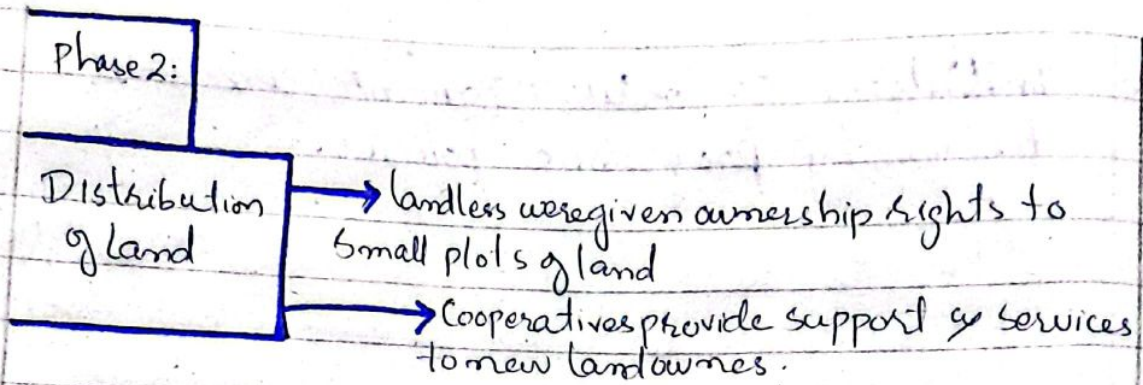 Phase 2:
Distribution
of land
landless were given ownership rights to
small plots of land
Cooperatives provide support & services
to new landownes.